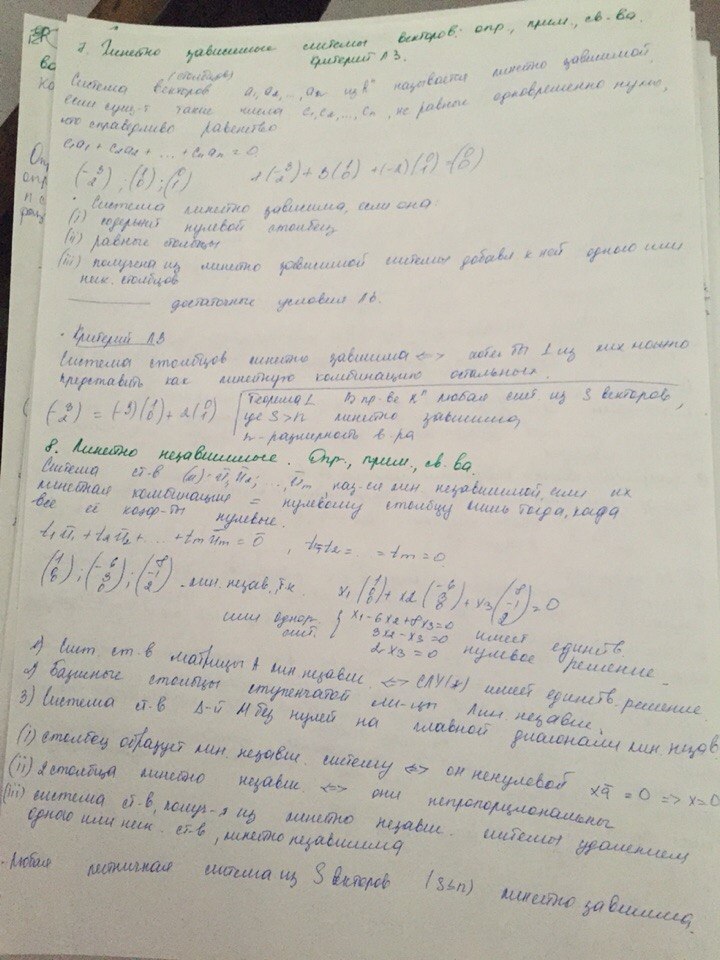 7. Линейно зависимые системы векторов: опр., прим., св-ва.
Критерий ЛЗ.
(столбцов)
Система векторов a₁, a₂, ..., aₙ из Rⁿ называется линейно зависимой,
если сущ-т такие числа c₁, c₂, ..., cₙ, не равные одновременно нулю,
что справедливо равенство
c₁a₁ + c₂a₂ + ... + cₙaₙ = 0
(-3 2); (1 0); (0 1) 1(-3 2) + 3(1 0) + (-2)(0 1) = (0 0)
· Система линейно зависима, если она:
(i) содержит нулевой столбец
(ii) равные столбцы
(iii) получена из линейно зависимой системы добавл к ней одного или
неск. столбцов
достаточные условия
· Критерий ЛЗ
Система столбцов линейно зависима <=> хотя бы 1 из них можно
представить как линейную комбинацию остальных.
(-3 2) = (-3)(1 0) + 2(0 1) Теорема 1. В пр-ве Rⁿ любая сист из S векторов,
где S>n линейно зависима,
n - размерность в-ра
8. Линейно независимые. Опр., прим., св-ва.
Система ст-в ū₁, ū₂, ..., ūₘ наз-ся лин. независимой, если их
линейная комбинация = нулевому столбцу лишь тогда, когда
все её коэф-ты нулевые.
t₁ū₁ + t₂ū₂ + ... + tₘūₘ = ō, t₁=t₂= ... = tₘ = 0
- лин. незав., т.к.
или однор. сист. { x₁-6x₂+8x₃=0
3x₂-x₃=0 имеет единств.
2x₃=0 нулевое решение.
1) Сист. ст-в матрицы A лин независ. <=> СЛУ(*) имеет единств. решение
2) Базисные столбцы ступенчатой м-цы лин. независ.
3) Система ст-в Δ-й М без нулей на главной диагонали лин. незав
(i) столбец образует лин. независ. систему <=> он ненулевой xā = 0 => x=0
(ii) 2 столбца линейно независ. <=> они непропорциональны
(iii) система ст-в, получ-я из линейно независ. системы удалением
одного или неск. ст-в, линейно независима
· Любая лестничная система из S векторов (S≤n) линейно зависима.